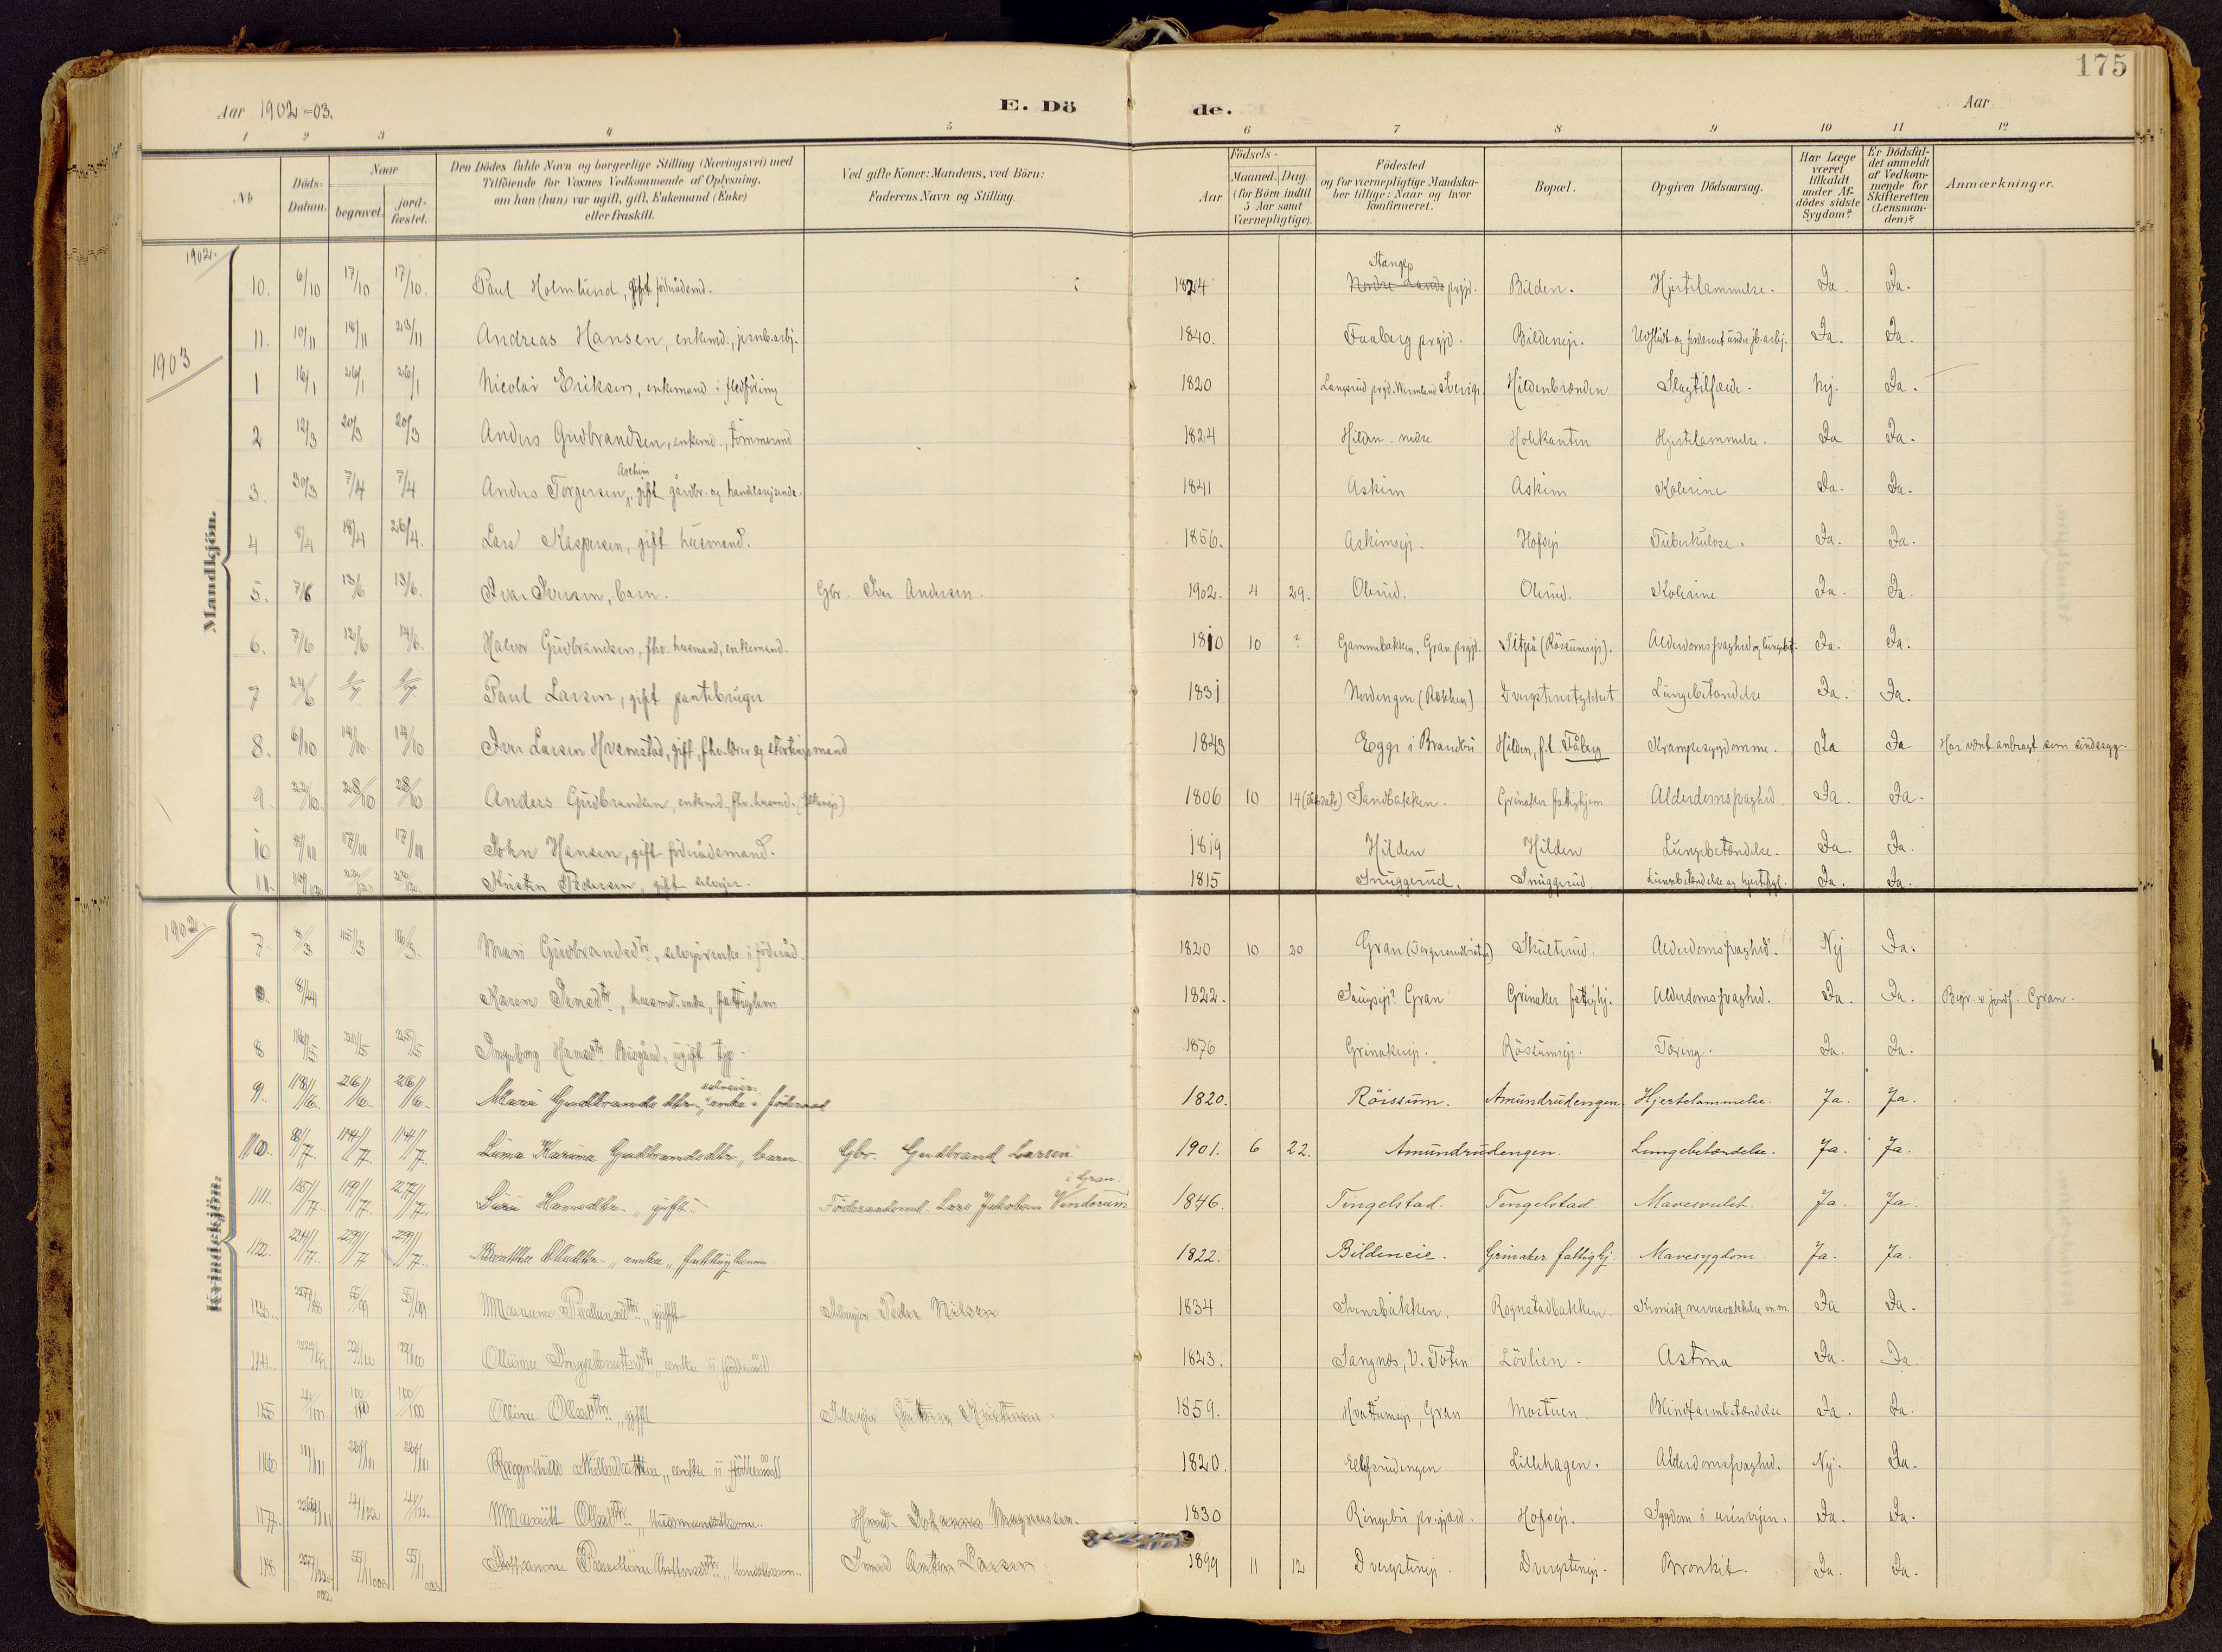 175
Aar 1902-03.
E. Dö de.
Aar
1 2 3 4 5 6 7 8 9 10 11 12
No
Döds-Datum.
Naar
begravet.
jord-fæstet.
Den Dödes fulde Navn og borgerlige Stilling (Næringsvei) med
Tilföiende for Voxnes Vedkommende af Oplysning,
om han (hun) var ugift, gift, Enkemand (Enke)
eller fraskilt.
Ved gifte Koner: Mandens, ved Börn:
Faderens Navn og Stilling.
Födsels-
Aar
Maaned. Dag.
(for Börn indtil
5 Aar samt
Værnepligtige).
Födested
og for værnepligtige Mandska-
ber tillige: Naar og hvor
konfirmeret.
Bopæl.
Opgiven Dödsaarsag.
Har Læge
været
tilkaldt
under Af-
dödes sidste
Sygdom?
Er Dödsfal-
det anmeldt
af Vedkom-
mende for
Skifteretten
(Lensman-
den)?
Anmærkninger.
Mandkjön.
1902.
10. 6/10 17/10 17/10. Paul Holmlund, gift föderådsmd. 1824 Stange Nordre Lands prgjd. Bilden. Hjertelammelse. Ja. Ja.
11. 10/11 18/11 23/11 Andreas Hansen, enkemd., jernb.arbj. 1840. Faaberg prgjd. Bildeneje. Ja. Ja.
1903
1 16/1 26/1 26/1 Nicolai Eriksen, enkemand i fledföring 1820 Hildenbrænden Slagtilfælde. Nej. Ja.
2 12/3 20/3 20/3 Anders Gudbrandsen, enkemd., tömmermd 1824 Hilden nedre Holekanten Hjertelammelse. Ja Ja.
3. 30/3 7/4 7/4 Anders Torgersen Aschim, gift gårdbr. og handelsrejsende. 1841 Askim Askim Kolerine Ja. Ja.
4 8/4 18/4 26/4. Lars Kaspersen, gift husmand. 1856. Askimseje. Hofseje Tuberkulose. Ja. Ja.
5. 7/6 13/6 13/6. Ivar Iversen, barn. Gbr. Iver Andersen. 1902. 4 29. Olerud. Olerud. Kolerine Ja. Ja.
6. 7/6 12/6 14/6. Halvor Gudbrandsen, fhv. husmand, enkemand. 1810 10 ? Gammebakken, Gran prgjd. (Rössumseje). Alderdomssvaghed og Ja. Ja.
7 24/6 1/7 1/7 Paul Larsen, gift pantebruger 1831 Nordengen (Rækken) Dvergstenstykket Lungebetændelse Ja. Ja.
8. 6/10 14/10 14/10 Iver Larsen Hvamstad, gift, fhv. lærer og stortingsmand 1843 Egge i Brandbu Hilden, f.t. Fåberg Krampesygdomme. Ja Ja Har været anbragt som sindssyg.
9. 22/10. 28/10 28/10 Anders Gudbrandsen, enkemd., fhv. husmd. 1806 10 14 Sandbakken. Grinaker fattighjem Alderdomssvaghed Ja. Ja.
10 8/11 17/11 17/11 John Hansen, gift föderådsmand. 1819 Hilden Hilden Lungebetændelse. Ja. Ja.
11. Kristen Pedersen, gift selvejer. 1815 Snuggerud. Snuggerud Lungebetændelse og Ja. Ja.
Kvindekjön.
1902.
7. 8/3 15/3 16/3. Mari Gudbrandsdtr., selvejerenke i föderåd. 1820 10 20 Gran Skulerud. Alderdomssvaghed. Nej Ja.
8/4 Karen Jensdtr, husmd. enke, fattiglem 1822. Gran Grinaker fattighj. Alderdomssvaghed. Ja. Ja. Begr. & jordf. Gran.
8 16/5 24/5 25/5 Ingeborg Hansdtr ugift 1876 Grinakereje. Rössumseje. Tæring. Ja. Ja.
9. 18/6. 26/6. 26/6. Maria Gudbrandsdtr, selveier enke i föderaad 1820. Röissum. Amundrudengen. Hjertelammelse. Ja. Ja.
10. 8/7. 14/7. 14/7. Karina Gudbrandsdtr, barn Gbr. Gudbrand Larsen 1901. 6 22. Amundrudengen. Lungebetændelse. Ja. Ja.
11. 15/7. 19/7. 27/7. Siri Hansdtr., gift. Föderaadsmd. Lars Jakobsen Vindorum i Gran. 1846. Tingelstad. Tingelstad Mavesvulst. Ja. Ja.
12. 24/7. 29/7 29/7. Berthe Olsdtr., enke, fattiglem 1822. Bildeneie. Grinaker fattighj. Mavesygdom Ja. Ja.
13. Marens Pedersdtr., gift Selvejer Peder Nilsen 1834 Svensbakken. Rognstadbakken. Kronisk m.m. Ja Ja.
14. Oline Ingebretsdtr, enke i föderåd 1823. V. Toten Lövlien. Astma Ja. Ja.
15 Oline Olsdtr., gift Selvejer Guttorm Kristensen 1859. Gran Mostuen. Blindtarmbetændelse Ja. Ja.
16 enke i föderåd 1820. Lillehagen. Alderdomssvaghed. Nej. Ja.
17. Marit Olsdtr., husmandskone. Husmd. Johannes Magnussen. 1830 Ringebu prgjæld. Hofseje. Sygdom i urinvejen. Ja. Ja.
18 Husmd Anton Larsen 1899 11 12 Dvergsteneje. Dvergsteneje. Bronkit. Ja. Ja.